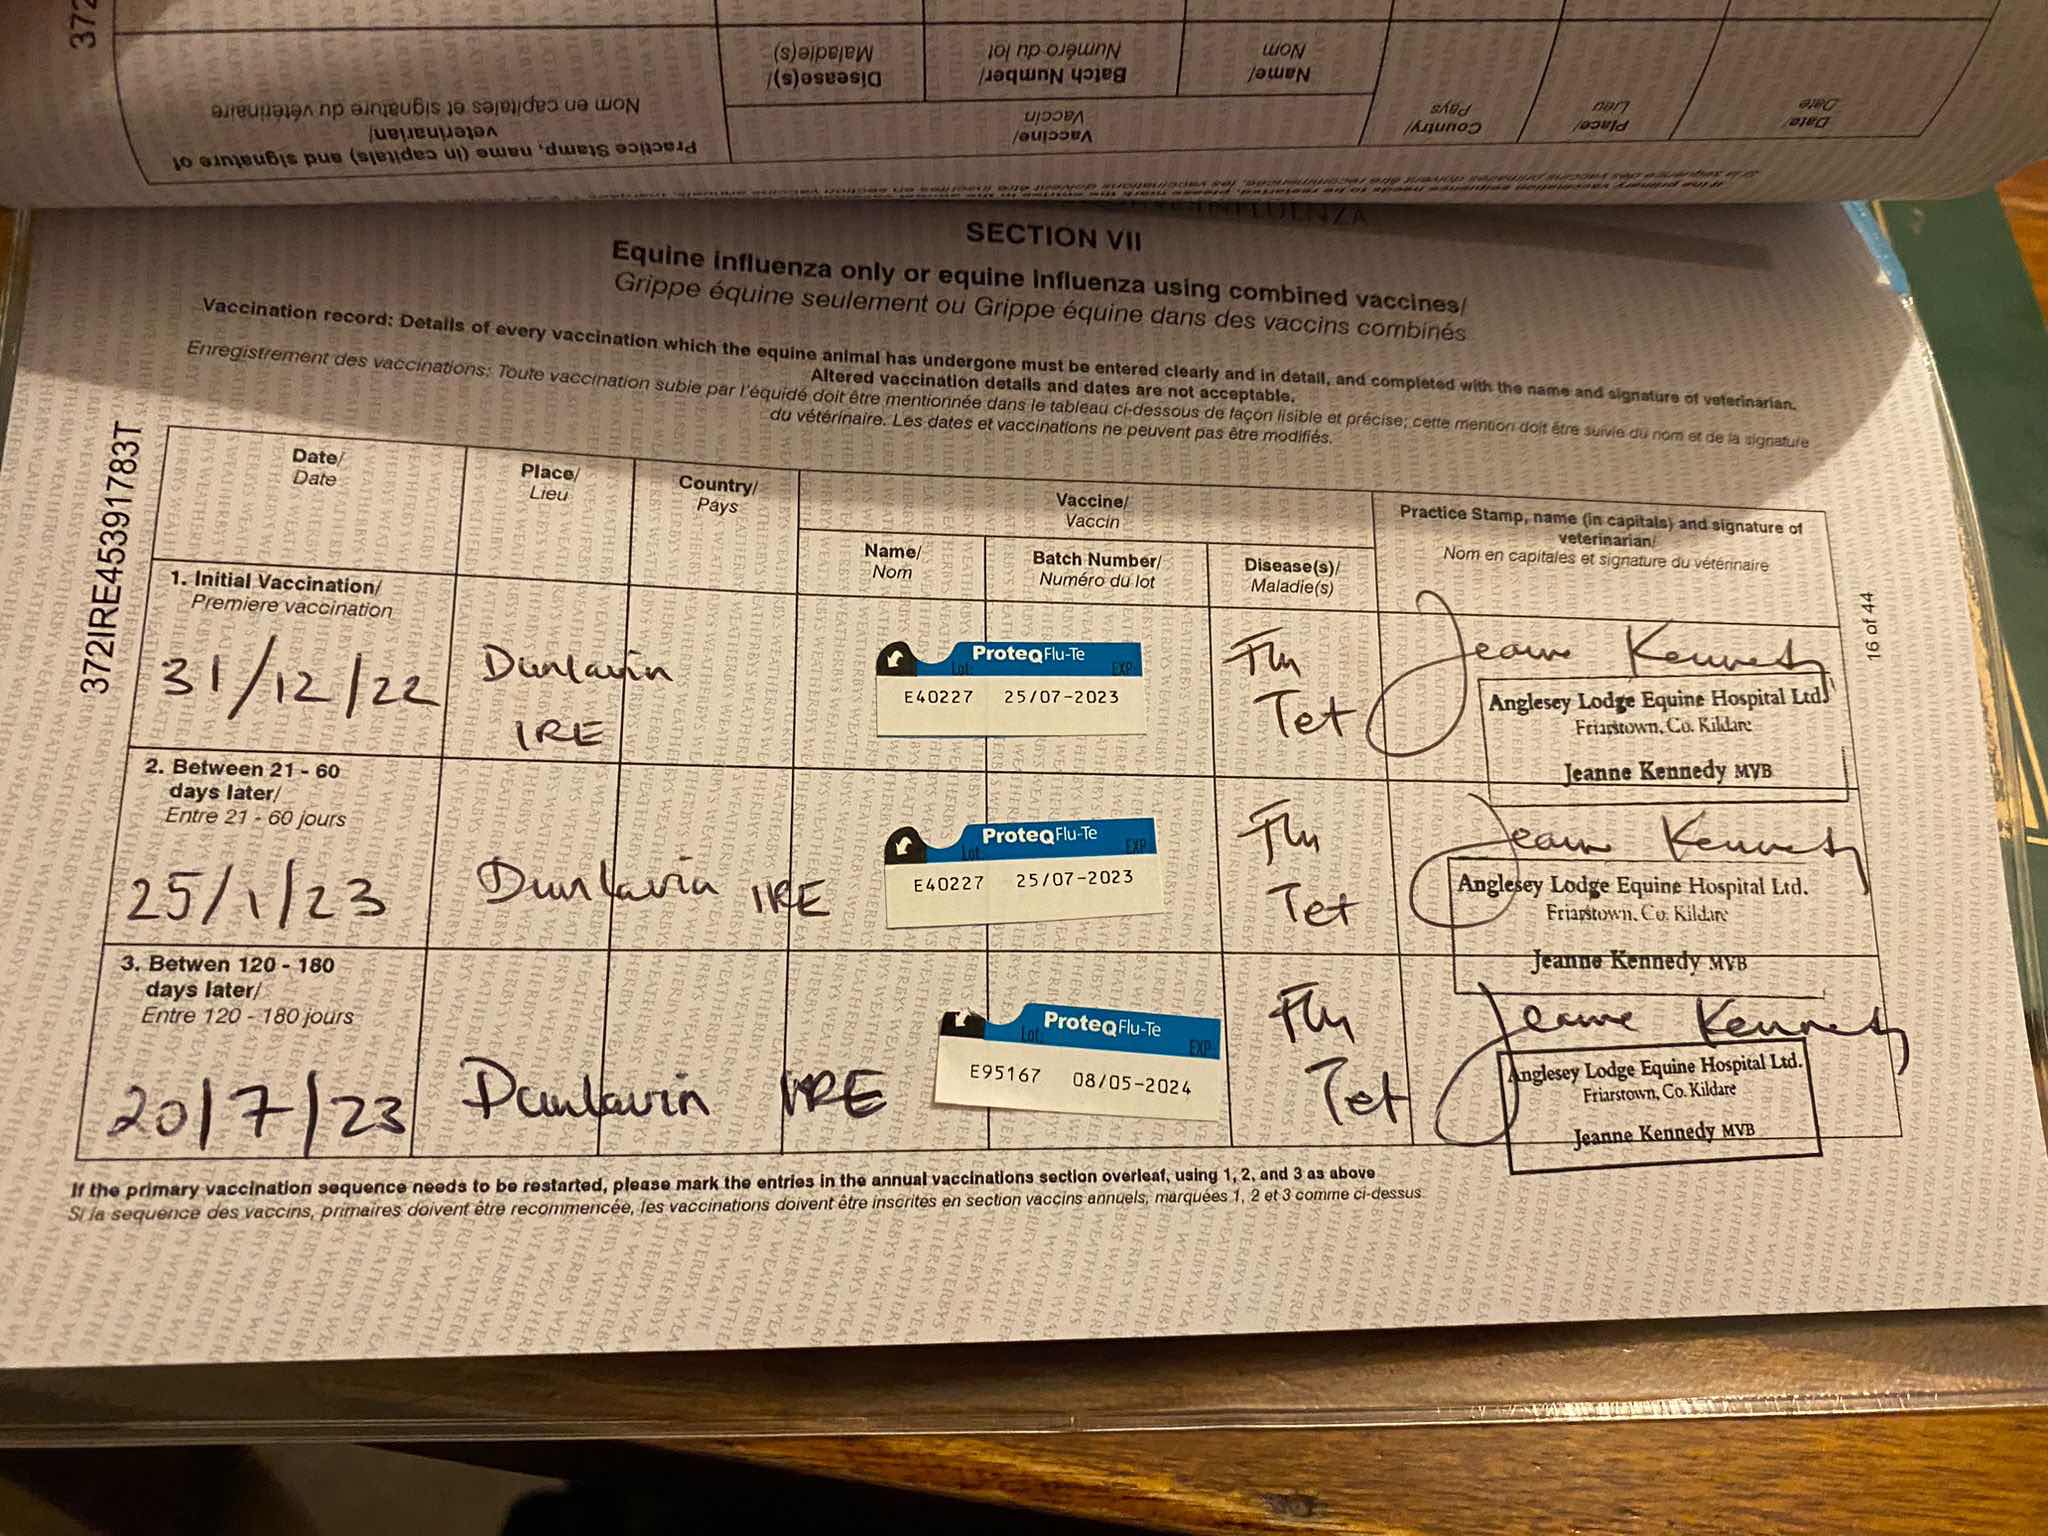 372
Practice Stamp, name (in capitals) and signature of
veterinarian/
Nom en capitales et signature du vétérinaire
Vaccine/
Vaccin
Disease(s)/
Maladie(s)
Batch Number/
Numéro du lot
Name/
Nom
Country/
Pays
Place/
Lieu
Date/
Date
If the primary vaccination sequence needs to be restarted, please mark the entries in the
INFLUENZA
SECTION VII
Equine influenza only or equine influenza using combined vaccines/
Grippe équine seulement ou Grippe équine dans des vaccins combinés
Vaccination record: Details of every vaccination which the equine animal has undergone must be entered clearly and in detail, and completed with the name and signature of veterinarian.
Altered vaccination details and dates are not acceptable.
Enregistrement des vaccinations: Toute vaccination subie par l'équidé doit être mentionnée dans le tableau ci-dessous de façon lisible et précise; cette mention doit être suivie du nom et de la signature
du vétérinaire. Les dates et vaccinations ne peuvent pas être modifiés.
372IRE45391783T
Date/
Date
Place/
Lieu
Country/
Pays
Vaccine/
Vaccin
Name/
Nom
Batch Number/
Numéro du lot
Disease(s)/
Maladie(s)
Practice Stamp, name (in capitals) and signature of
veterinarian/
Nom en capitales et signature du vétérinaire
16 of 44
1. Initial Vaccination/
Premiere vaccination
31/12/22
Dunlavin
IRE
ProteqFlu-Te
Lot: EXP
E40227 25/07-2023
Flu
Tet
Jeanne Kennedy
Anglesey Lodge Equine Hospital Ltd.
Friarstown, Co. Kildare
Jeanne Kennedy MVB
2. Between 21 - 60
days later/
Entre 21 - 60 jours
25/1/23
Dunlavin IRE
ProteqFlu-Te
Lot: EXP
E40227 25/07-2023
Flu
Tet
Jeanne Kennedy
Anglesey Lodge Equine Hospital Ltd.
Friarstown, Co. Kildare
Jeanne Kennedy MVB
3. Betwen 120 - 180
days later/
Entre 120 - 180 jours
20/7/23
Dunlavin IRE
ProteqFlu-Te
Lot: EXP
E95167 08/05-2024
Flu
Tet
Jeanne Kennedy
Anglesey Lodge Equine Hospital Ltd.
Friarstown, Co. Kildare
Jeanne Kennedy MVB
If the primary vaccination sequence needs to be restarted, please mark the entries in the annual vaccinations section overleaf, using 1, 2, and 3 as above
Si la sequence des vaccins, primaires doivent être recommencée, les vaccinations doivent être inscrites en section vaccins annuels, marquées 1, 2 et 3 comme ci-dessus